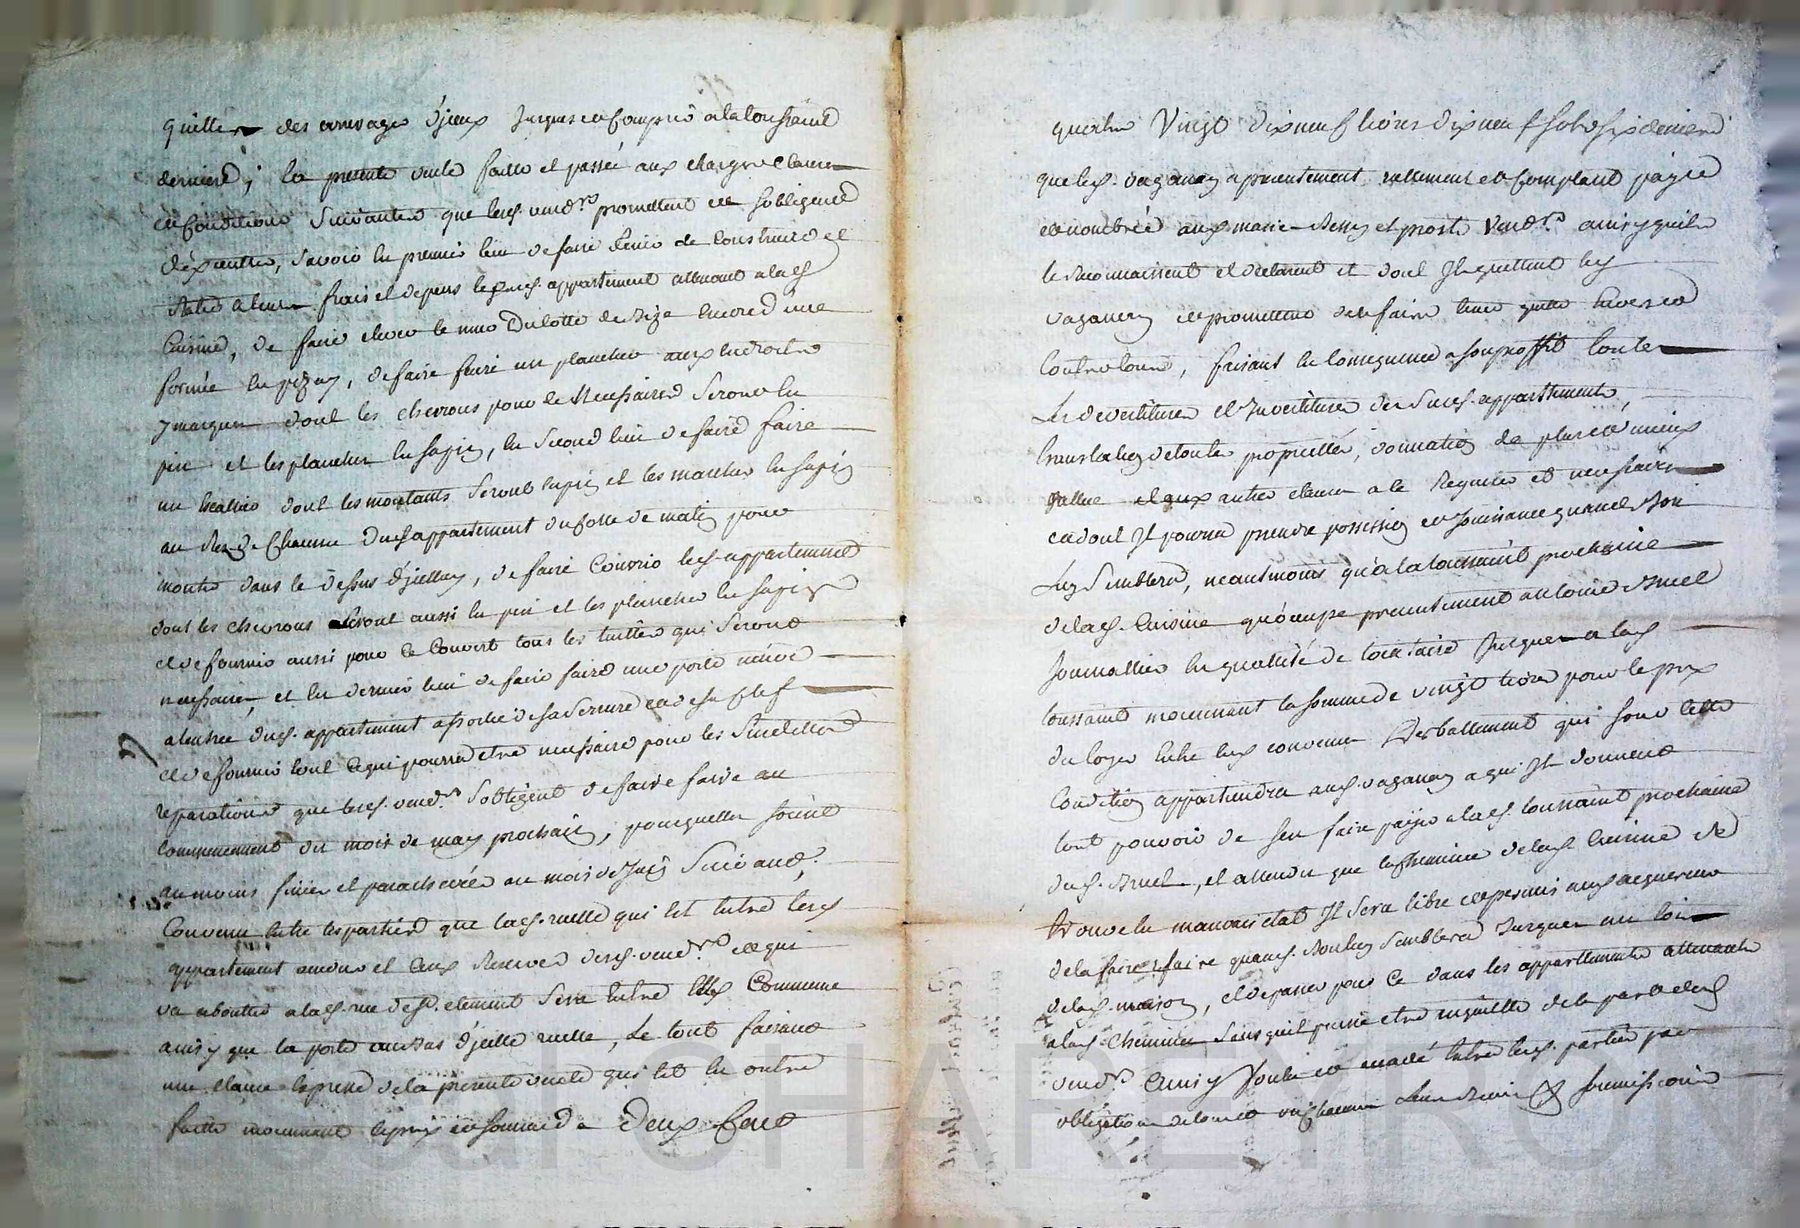 quittes des arrerages d'jceux jusques et compris a la toussaint
derniere; la presente vente faitte et passée aux charges clauses
et conditions suivantes que lesd. vend.rs promettent et s'obligent
d'éxecuter, savoir en premier lieu de faire finir de construire et
a leurs frais et depens lesusd. appartement attenant a lad.
cuisine, de faire elever le mur du cotté de bize encore d'une
formée en pizay, de faire faire un plancher aux endroits
y marques dont les chevrons pour ce necessaires seront en
pin et les planches en sapin, en second lieu de faire faire
un escallier dont les montants seront en pin et les marches en sapin
au rez de chaussée dud. appartement du cotté de matin pour
monter dans le dessus d'jcelluy, de faire couvrir led. appartement
dont les chevrons seront aussi en pin et les planches en sapin
et de fournir aussi pour ce couvert tous les tuilles qui seront
necessaires, et en dernier lieu de faire faire une porte neuve
a l'entrée dud. appartement assortie de sa serrure et de sa clef
et de fournir tout ce qui pourra etre necessaire pour les susdittes
reparations que lesd. vend.rs s'obligent de faire faire au
commencement du mois de may prochain, pour quelles soient
au moins finies et parachevées au mois de juin suivant;
convenu entre les parties que lad. ruelle qui est entre lesd.
appartement vendu et ceux reservés desd. vend.rs et qui
va aboutir a lad. rue de st. clement sera entre eux commune
ainsy que la porte au bas d'jcelle ruelle, le tout faisant
une clause expresse de la presente vente qui est en outre
faitte moyennant le prix et somme de deux cent
quatre vingt dix neuf livres dix neuf sols six deniers
que led. vaganay a presentement reellement et comptant payé
et nombrée auxd. mariés et vend.rs ainsy qu'ils
le reconnaissent et declarent et dont ils quittent led.
vaganay et promettent de le faire tenir quitte envers et
contre tous, faisant en consequence a son proffit toutes
les devestitures et investitures desusd. appartements,
translation de toutes proprietés, donation de plus et mieux
vallue et aux autres clauses a ce requises et necessaires
et dont il pourra prendre possession et jouissance quand bon
luy semblera, neantmoins qu'a la toussaint prochaine
de lad. cuisine qu'occupe presentement antoine bruel
journallier en qualité de locataire jusques a lad.
toussaint moyennant la somme de vingt livres pour le prix
du loyer entre eux convenu verballement qui sous cette
condition appartiendra aud. vaganay a qui ils donnent
tout pouvoir de s'en faire payer a lad. toussaint prochaine
dud. bruel, et attendu que la cheminée de lad. cuisine se
trouve en mauvais etat il sera libre et permis aud. acquereur
de la faire refaire quand bon luy semblera jusques au toit
de lad. maison, et de passer pour ce dans les appartements attenants
a lad. cheminée sans qu'il puisse etre inquietté de la part desd.
vend.rs ainsy voulu et accordé entre lesd. parties par
obligations de tous et un chacun leurs biens & soumissions